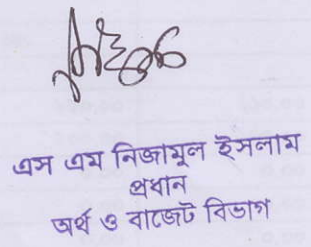 এস এম নিজামুল ইসলাম
প্রধান
অর্থ ও বাজেট বিভাগ